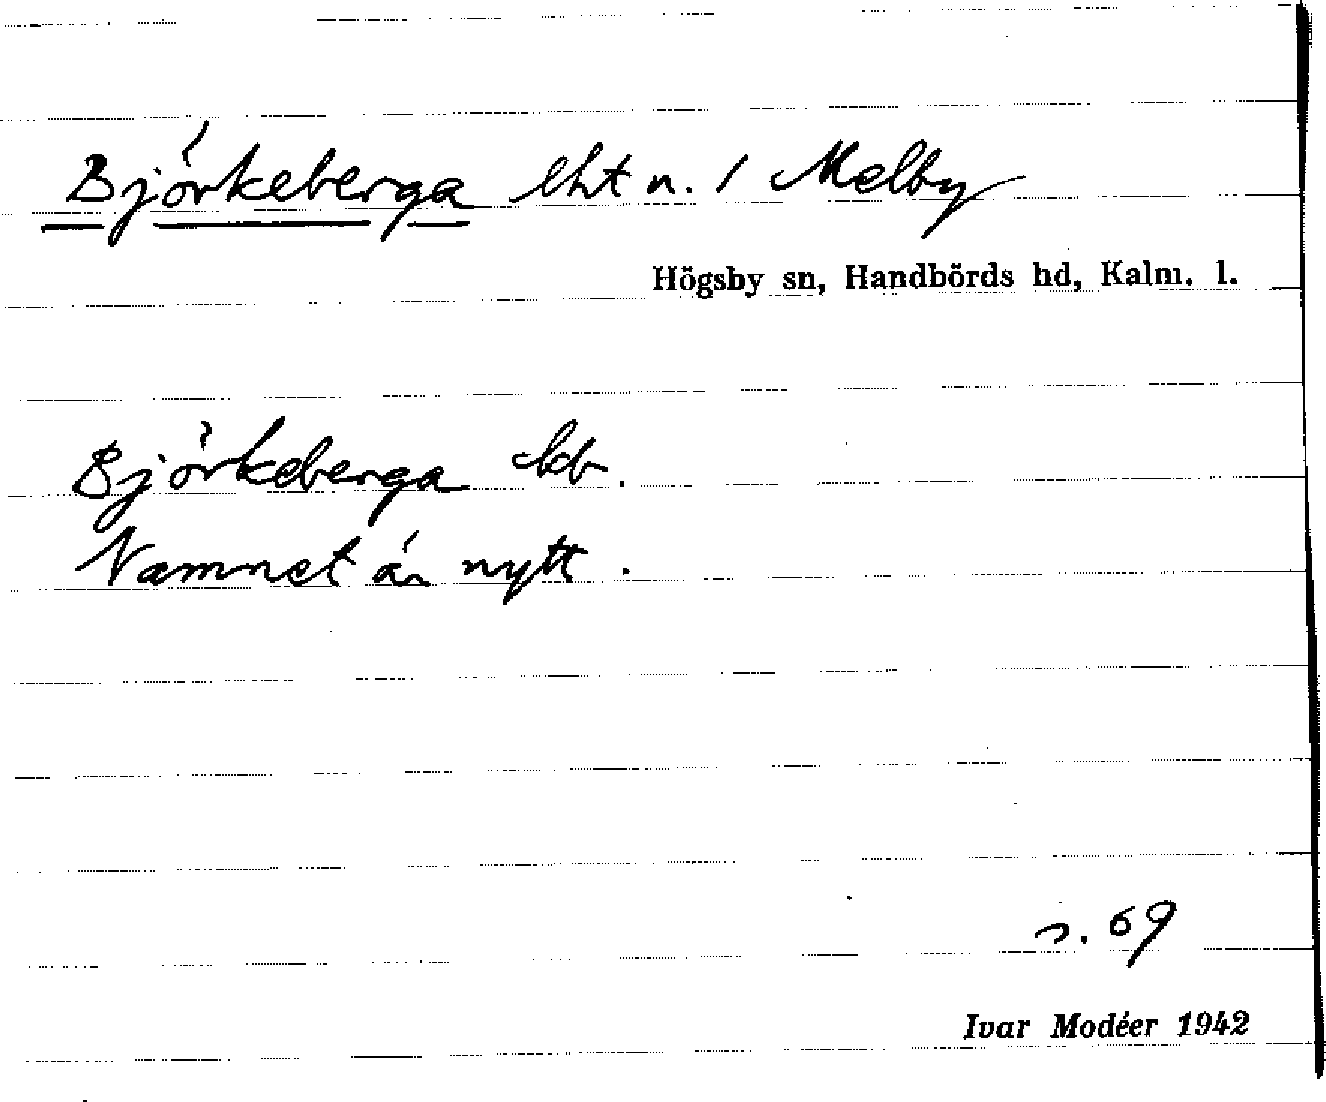 Björkeberga lht n. 1 Melby
Högsby sn, Handbörds hd, Kalm. l.
Björkeberga kb.
Namnet är nytt.
s. 69
Ivar Modéer 1942